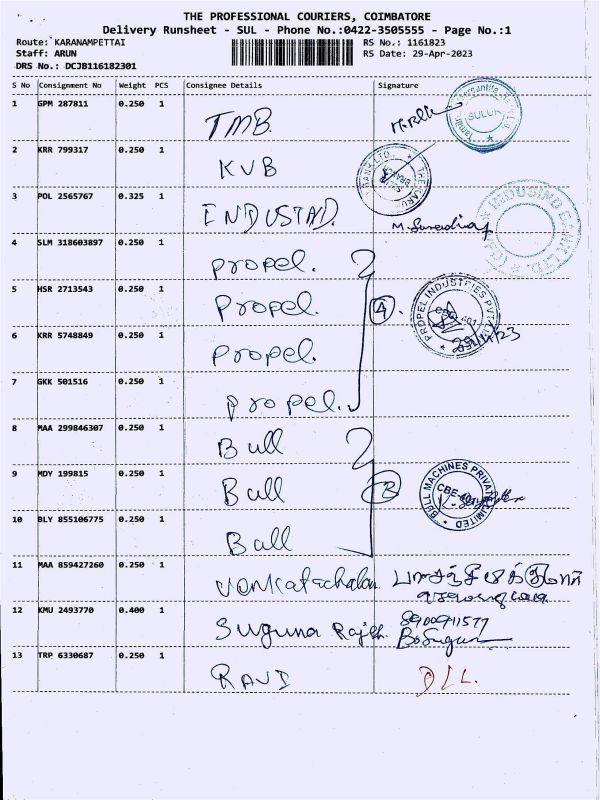 THE PROFESSIONAL COURIERS, COIMBATORE
Delivery Runsheet - SUL - Phone No.:0422-3505555 - Page No.:1
Route: KARANAMPETTAI RS No.: 1161823
Staff: ARUN RS Date: 29-Apr-2023
DRS No.: DCJB116182301
S No Consignment No Weight PCS Consignee Details Signature
1 GPM 287811 0.250 1 TMB.
SULUR
2 KRR 799317 0.250 1 KVB
3 POL 2565767 0.325 1 INDUSIAD.
INDUSIND BANK LTD.
4 SLM 318603897 0.250 1 propel.
5 HSR 2713543 0.250 1 Propel. 4. PROPEL INDUSTRIES PVT
6 KRR 5748849 0.250 1 propel.
7 GKK 501516 0.250 1 propel.
8 MAA 299846307 0.250 1 Bull
9 MDY 199815 0.250 1 Bull 3 BULL MACHINES PRIVATE LIMITED
10 BLY 855106775 0.250 1 Bull
11 MAA 859427260 0.250 1 Venkatachalam
12 KMU 2493770 0.400 1 Suguna Rajesh. 8900911577
13 TRP 6330687 0.250 1 RAVI D/L.